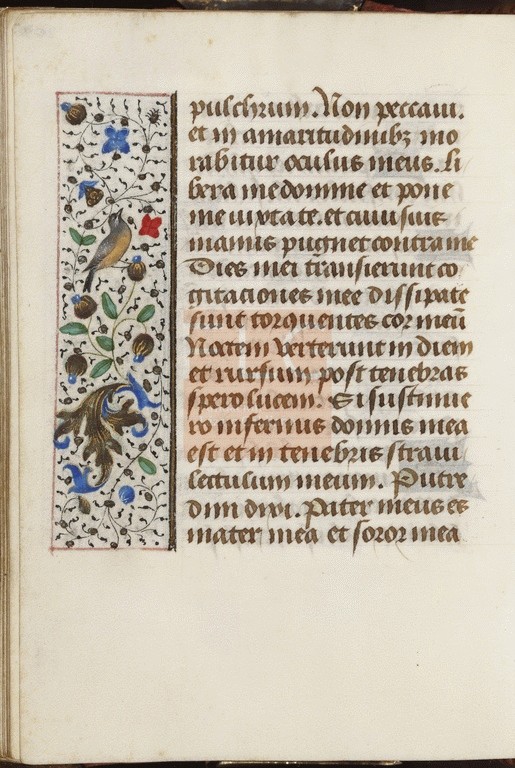 pulchrum. Non peccaui.
et in amaritudinibꝫ mo
rabitur oculus meus. li
bera me domine et pone
me iuxta te. et cuiusuis
manus pugnet contra me
Dies mei trāsierunt co
gitaciones mee dissipate
sunt torquentes cor meū
Noctem verterunt in diem
et rursum post tenebras
spero lucem. Si sustinue
ro infernus domus mea
est et in tenebris straui
lectulum meum. Putre
dini dixi. Pater meus es
mater mea et soror mea